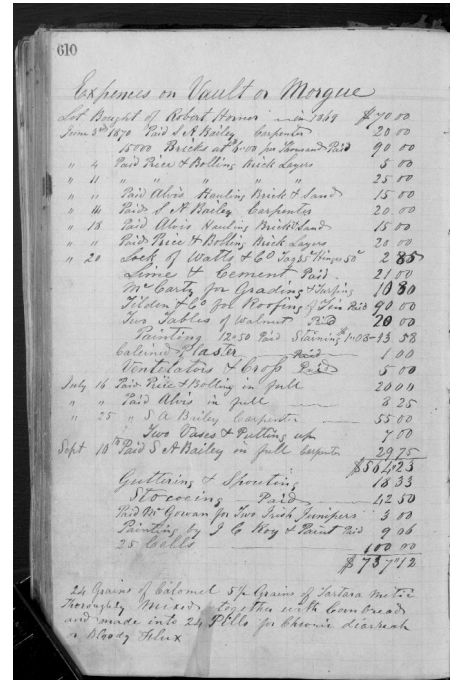 610
Expences on Vault or Morgue
Lot Bought of Robert Hornor in 1869 $70 00
June 3rd 1870 Paid S A Bailey Carpenter 20 00
15000 Bricks at 6.00 per Thousand Paid 90 00
" 4 Paid Rice & Bolling Brick Layers 5 00
" 11 " " " " " 25 00
" " Paid Alvis Hauling Brick & Sand 15 00
" 14 Paid S A Bailey Carpenter 20.00
" 18 Paid Alvis Hauling Brick & Sand 15 00
" " Paid Rice & Bolling Brick Layers 20 00
" 20 Lock of Watts & Co Hinges 50c 2 85
Lime & Cement Paid 21 00
McCarty for Grading & 10 80
Tilden & Co for Roofing of Tin Paid 90 00
Two Tables of Walnut Paid 20 00
Painting 12=50 Paid Staining $1=08 - 13 58
Calcined Plaster Paid 1 00
Ventelators & Crop Paid 5 00
July 16 Paid Rice & Bolling in full 20 00
" " Paid Alvis in full 3 25
" 25 " S A Bailey Carpenter 55 00
" Two Vases & Putting up 7 00
Sept 10th Paid S A Bailey in full Carpenter 29 75
$564.23
Guttering & Spouting 18 33
Stoccoing Paid 42 50
Paid McGowan for Two Irish Junipers 3 00
Painting by J C Woy & Paint Paid 9 06
25 Cells 100 00
$737"12
24 Grains of Calomel 5 Grains of Tartara Metic
Thoroughly Mixed together with Corn Bread
and made into 24 Pills for Chronic diareah
or Bloody Flux